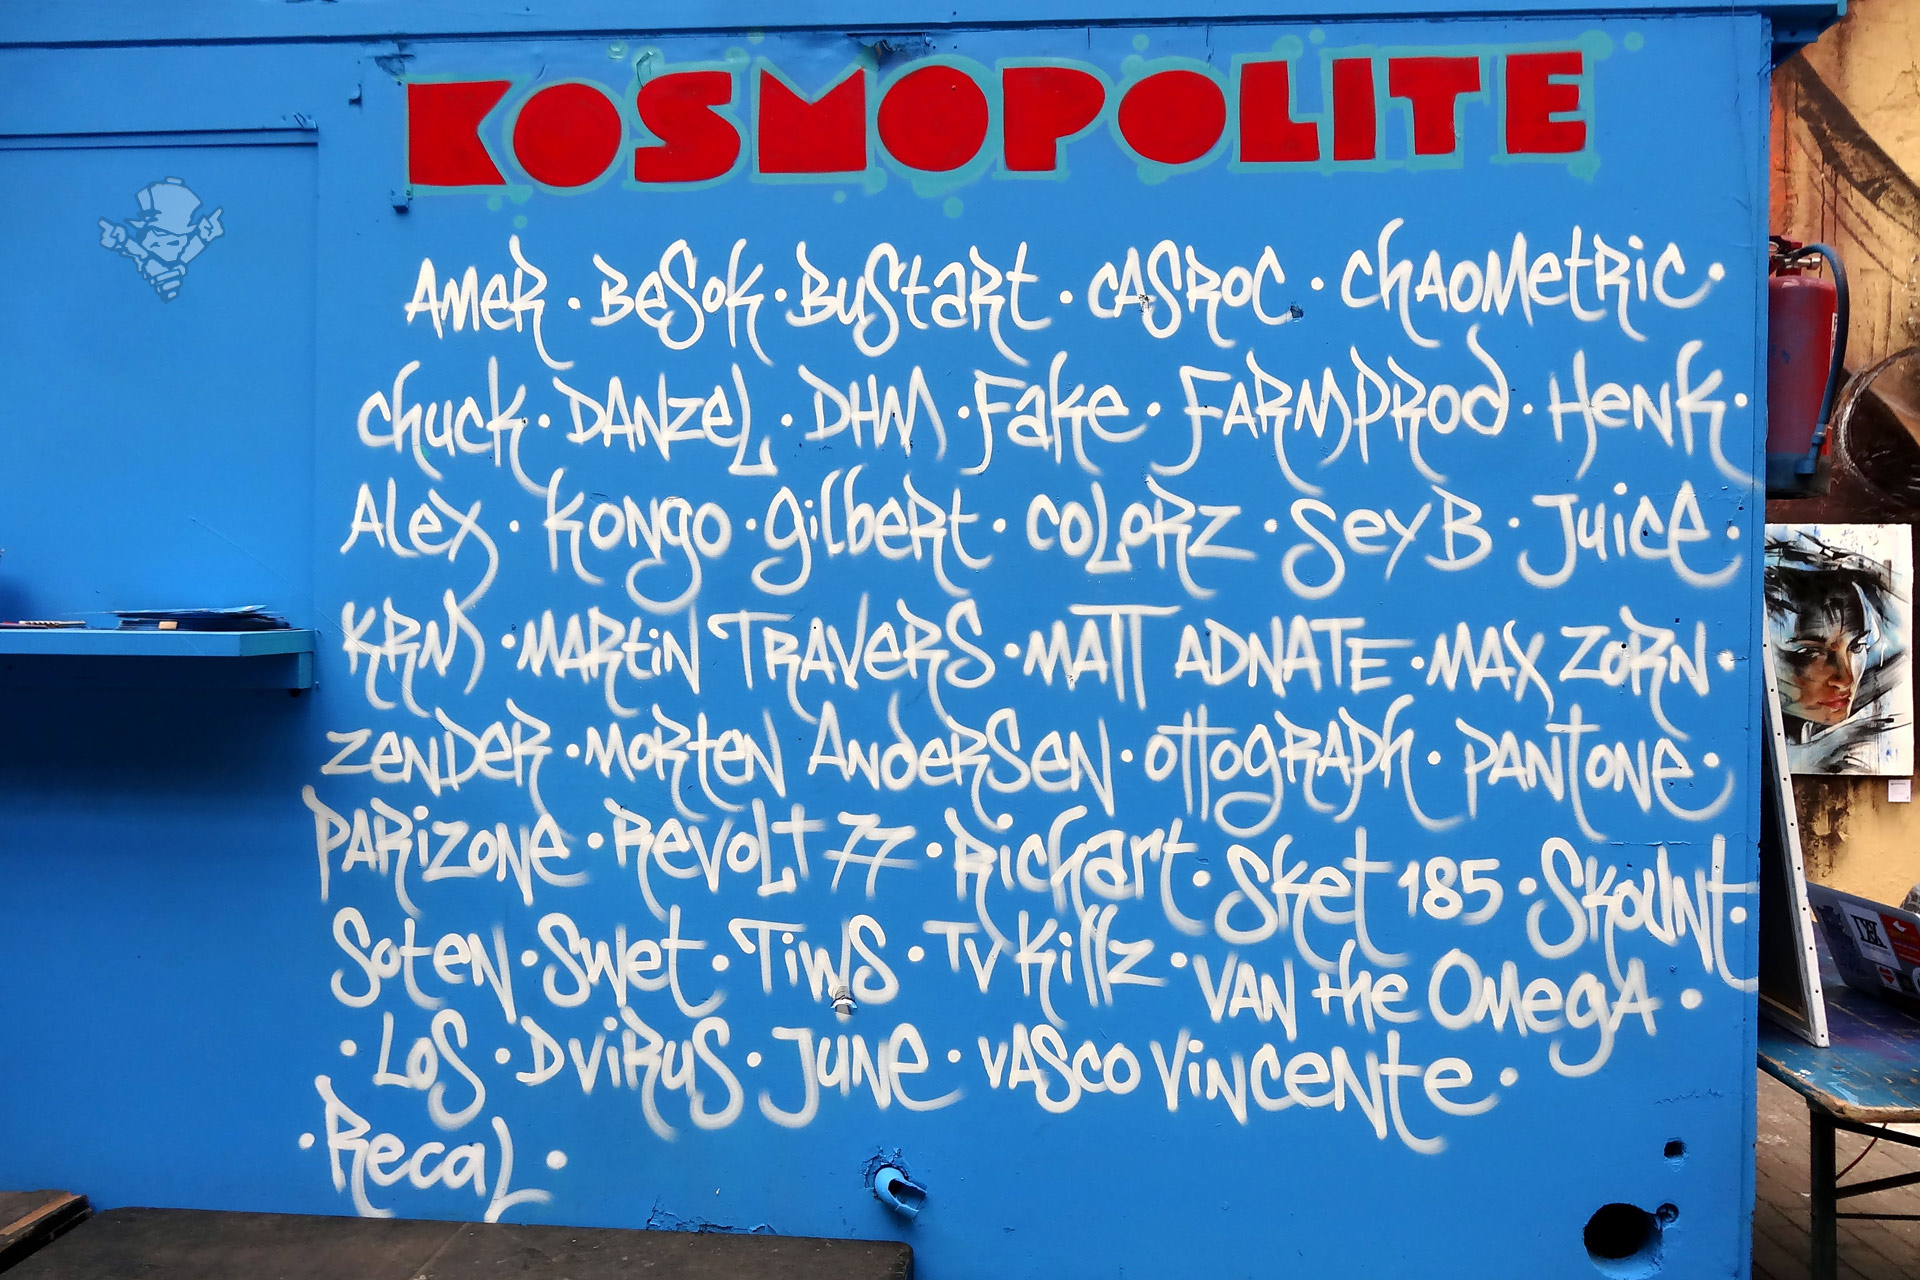 KOSMOPOLITE
AMeR · BeSok · BuStaRt · CASROC · ChAOMetRic ·
Chuck · DANzeL · DHM · Fake · FARMPROd · HenK ·
Alex · Kongo · gilbeRt · CoLoRz · SeyB · Juice ·
KRM · MARtiN TRAVeRS · MATT ADNATE · MAX ZoRN ·
ZeNDeR · MoRteN AndeRSeN · OttogRAPh · PANtoNe ·
PARizoNe · RevoLt 77 · Richart · Sket 185 · SkouNt ·
SoteN · Swet · TiwS · TV Killz · VAN the OmegA ·
· LoS · DViRuS · JuNe · VASco ViNceNte ·
· RecaL ·